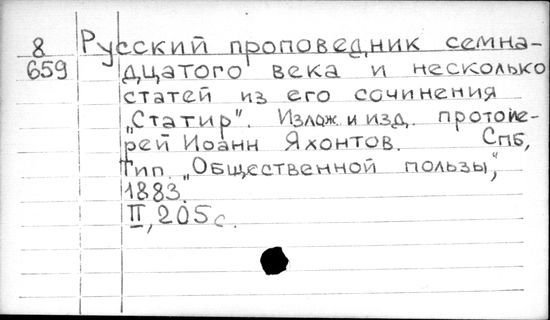 8 Русский проповедник семна-
659 дцатого века и несколько
статей из его сочинения
„Статир". Излож. и изд. протоие-
рей Иоанн Яхонтов. Спб,
Тип. „Общественной пользы",
1883.
II, 205 с.